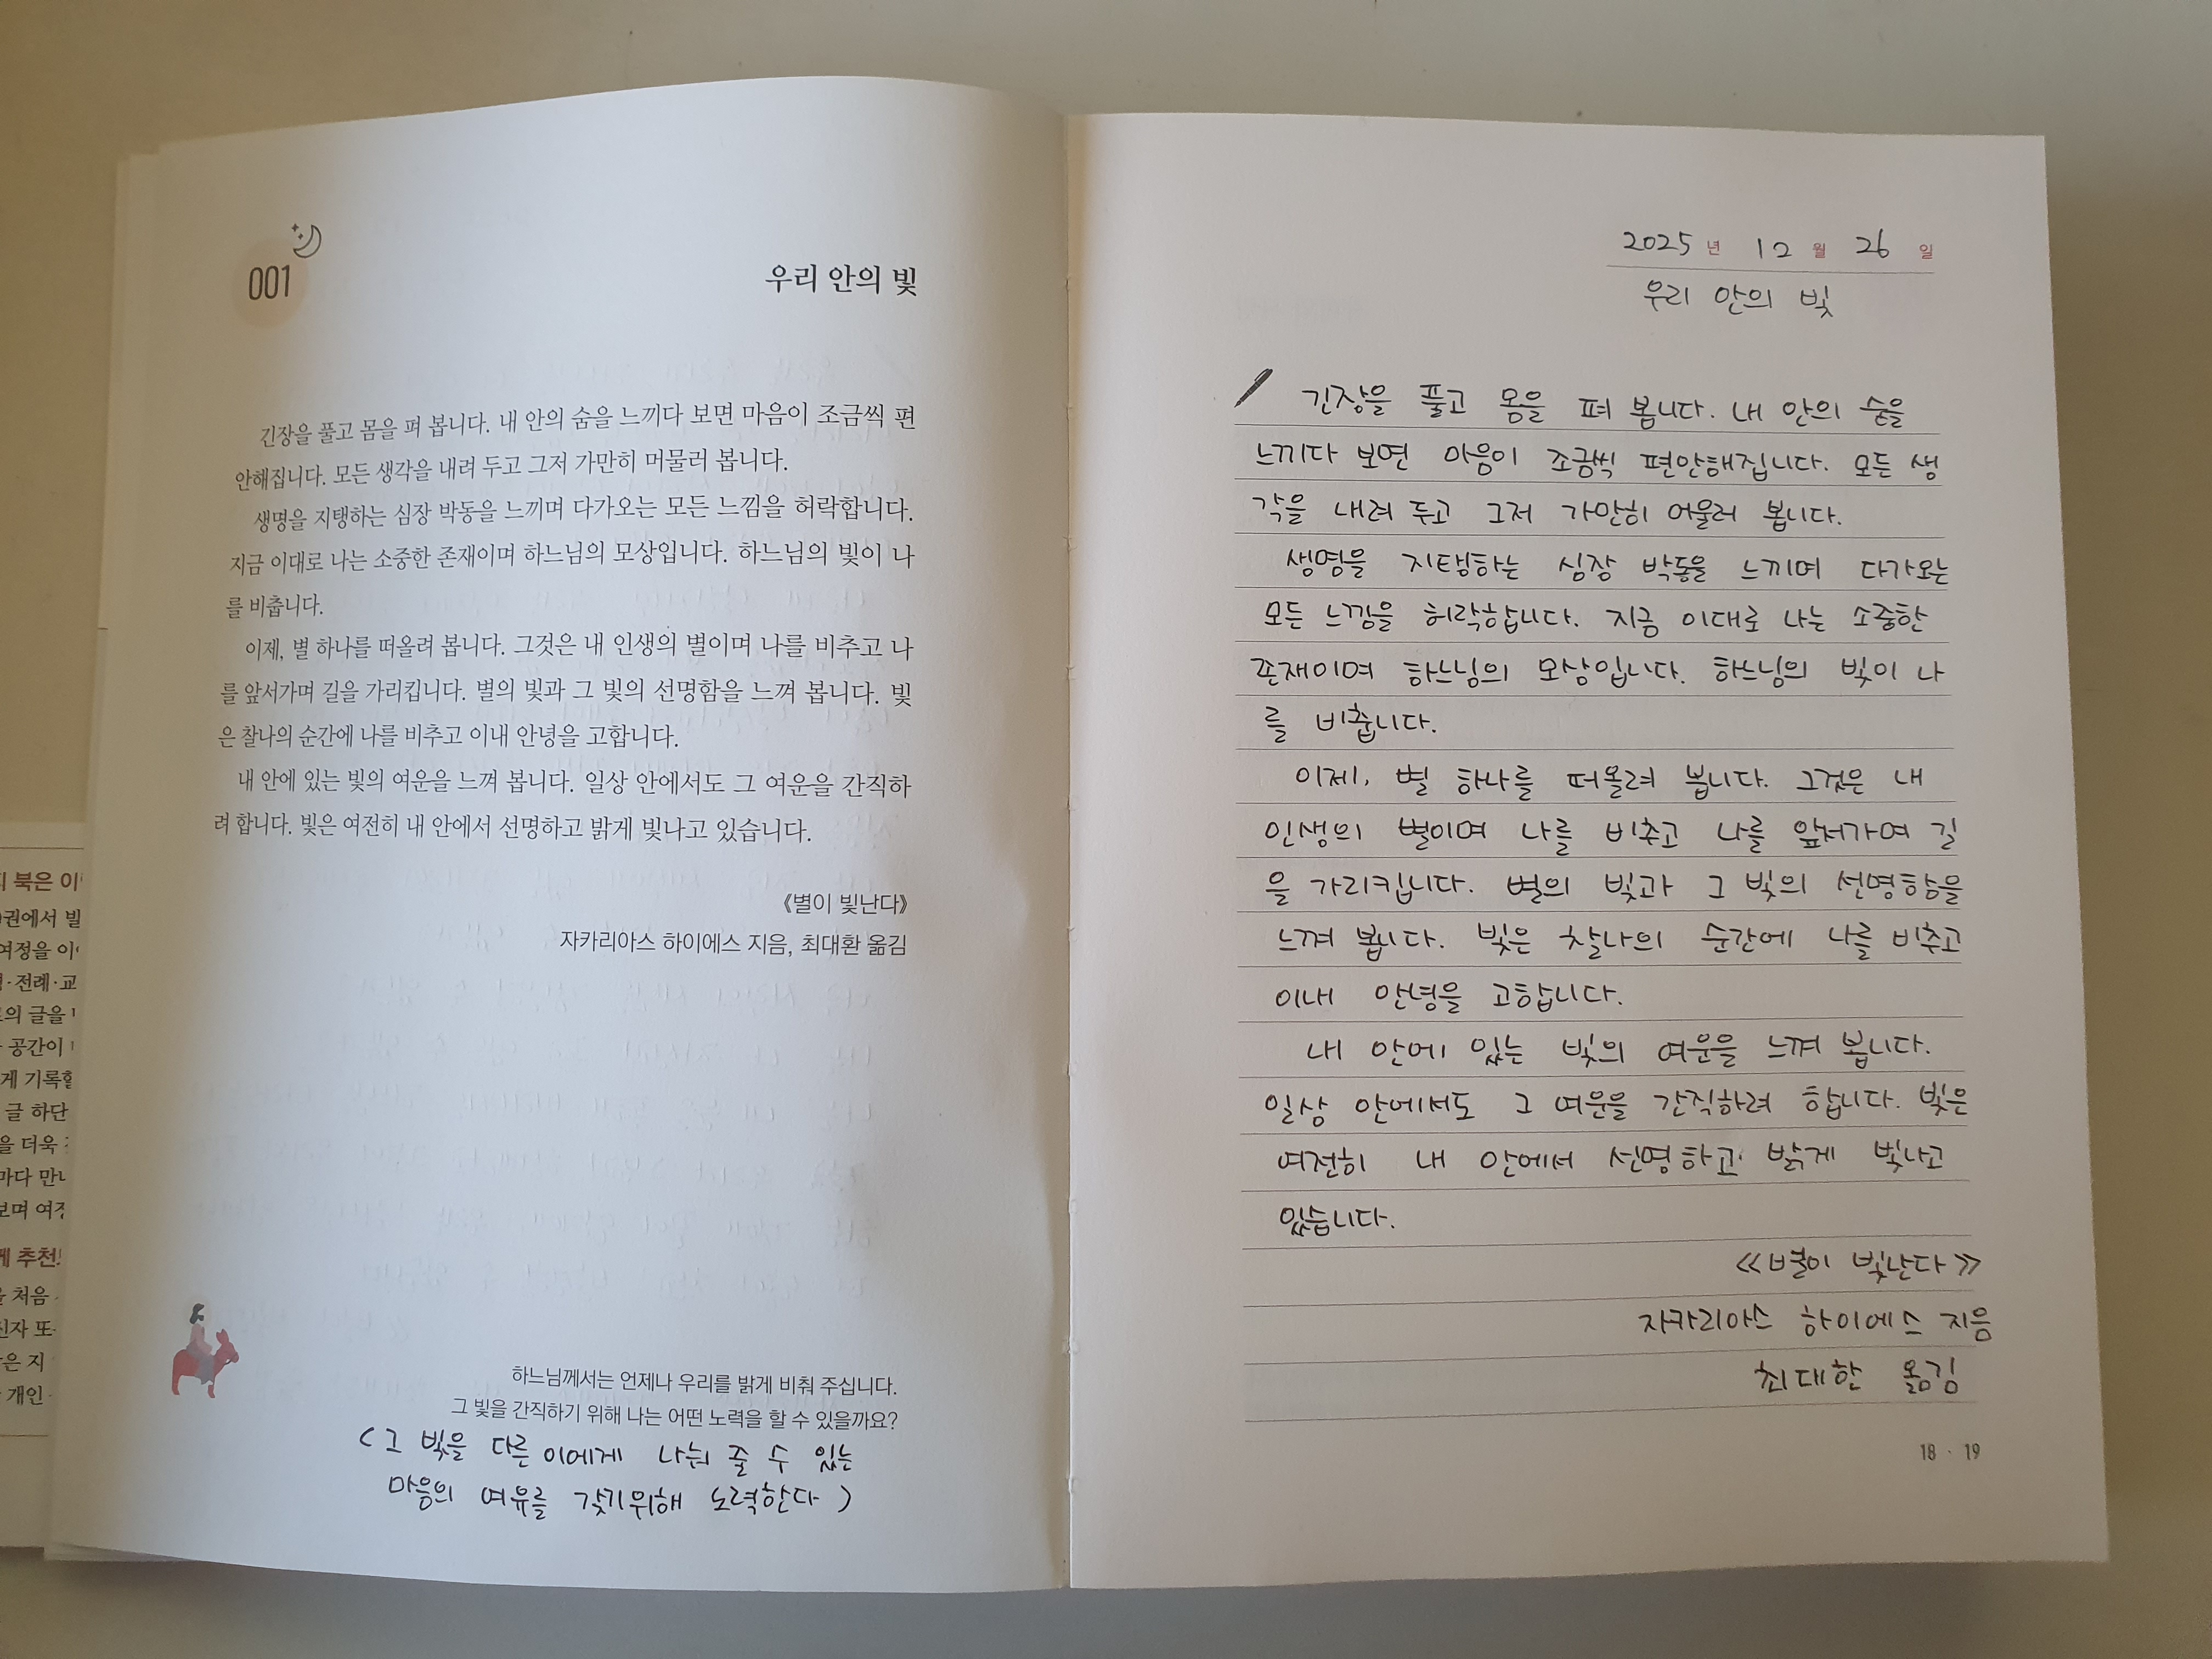 001
우리 안의 빛
긴장을 풀고 몸을 펴 봅니다. 내 안의 숨을 느끼다 보면 마음이 조금씩 편
안해집니다. 모든 생각을 내려 두고 그저 가만히 머물러 봅니다.
생명을 지탱하는 심장 박동을 느끼며 다가오는 모든 느낌을 허락합니다.
지금 이대로 나는 소중한 존재이며 하느님의 모상입니다. 하느님의 빛이 나
를 비춥니다.
이제, 별 하나를 떠올려 봅니다. 그것은 내 인생의 별이며 나를 비추고 나
를 앞서가며 길을 가리킵니다. 별의 빛과 그 빛의 선명함을 느껴 봅니다. 빛
은 찰나의 순간에 나를 비추고 이내 안녕을 고합니다.
내 안에 있는 빛의 여운을 느껴 봅니다. 일상 안에서도 그 여운을 간직하
려 합니다. 빛은 여전히 내 안에서 선명하고 밝게 빛나고 있습니다.
《별이 빛난다》
자카리아스 하이에스 지음, 최대환 옮김
하느님께서는 언제나 우리를 밝게 비춰 주십니다.
그 빛을 간직하기 위해 나는 어떤 노력을 할 수 있을까요?
(그 빛을 다른 이에게 나눠 줄 수 있는
마음의 여유를 갖기위해 노력한다)
북은 이
권에서 빌
여정을 이
전례·교
의 글을
공간이
게 기록할
글 하단
을 더욱
마다 만나
보며 여정
께 추천
을 처음
진자 또
은 지
개인
2025년 12월 26일
우리 안의 빛
긴장을 풀고 몸을 펴 봅니다. 내 안의 숨을
느끼다 보면 마음이 조금씩 편안해집니다. 모든 생
각을 내려 두고 그저 가만히 머물러 봅니다.
생명을 지탱하는 심장 박동을 느끼며 다가오는
모든 느낌을 허락합니다. 지금 이대로 나는 소중한
존재이며 하느님의 모상입니다. 하느님의 빛이 나
를 비춥니다.
이제, 별 하나를 떠올려 봅니다. 그것은 내
인생의 별이며 나를 비추고 나를 앞서가며 길
을 가리킵니다. 별의 빛과 그 빛의 선명함을
느껴 봅니다. 빛은 찰나의 순간에 나를 비추고
이내 안녕을 고합니다.
내 안에 있는 빛의 여운을 느껴 봅니다.
일상 안에서도 그 여운을 간직하려 합니다. 빛은
여전히 내 안에서 선명하고 밝게 빛나고
있습니다.
《별이 빛난다》
자카리아스 하이에스 지음
최대한 옮김
18 · 19